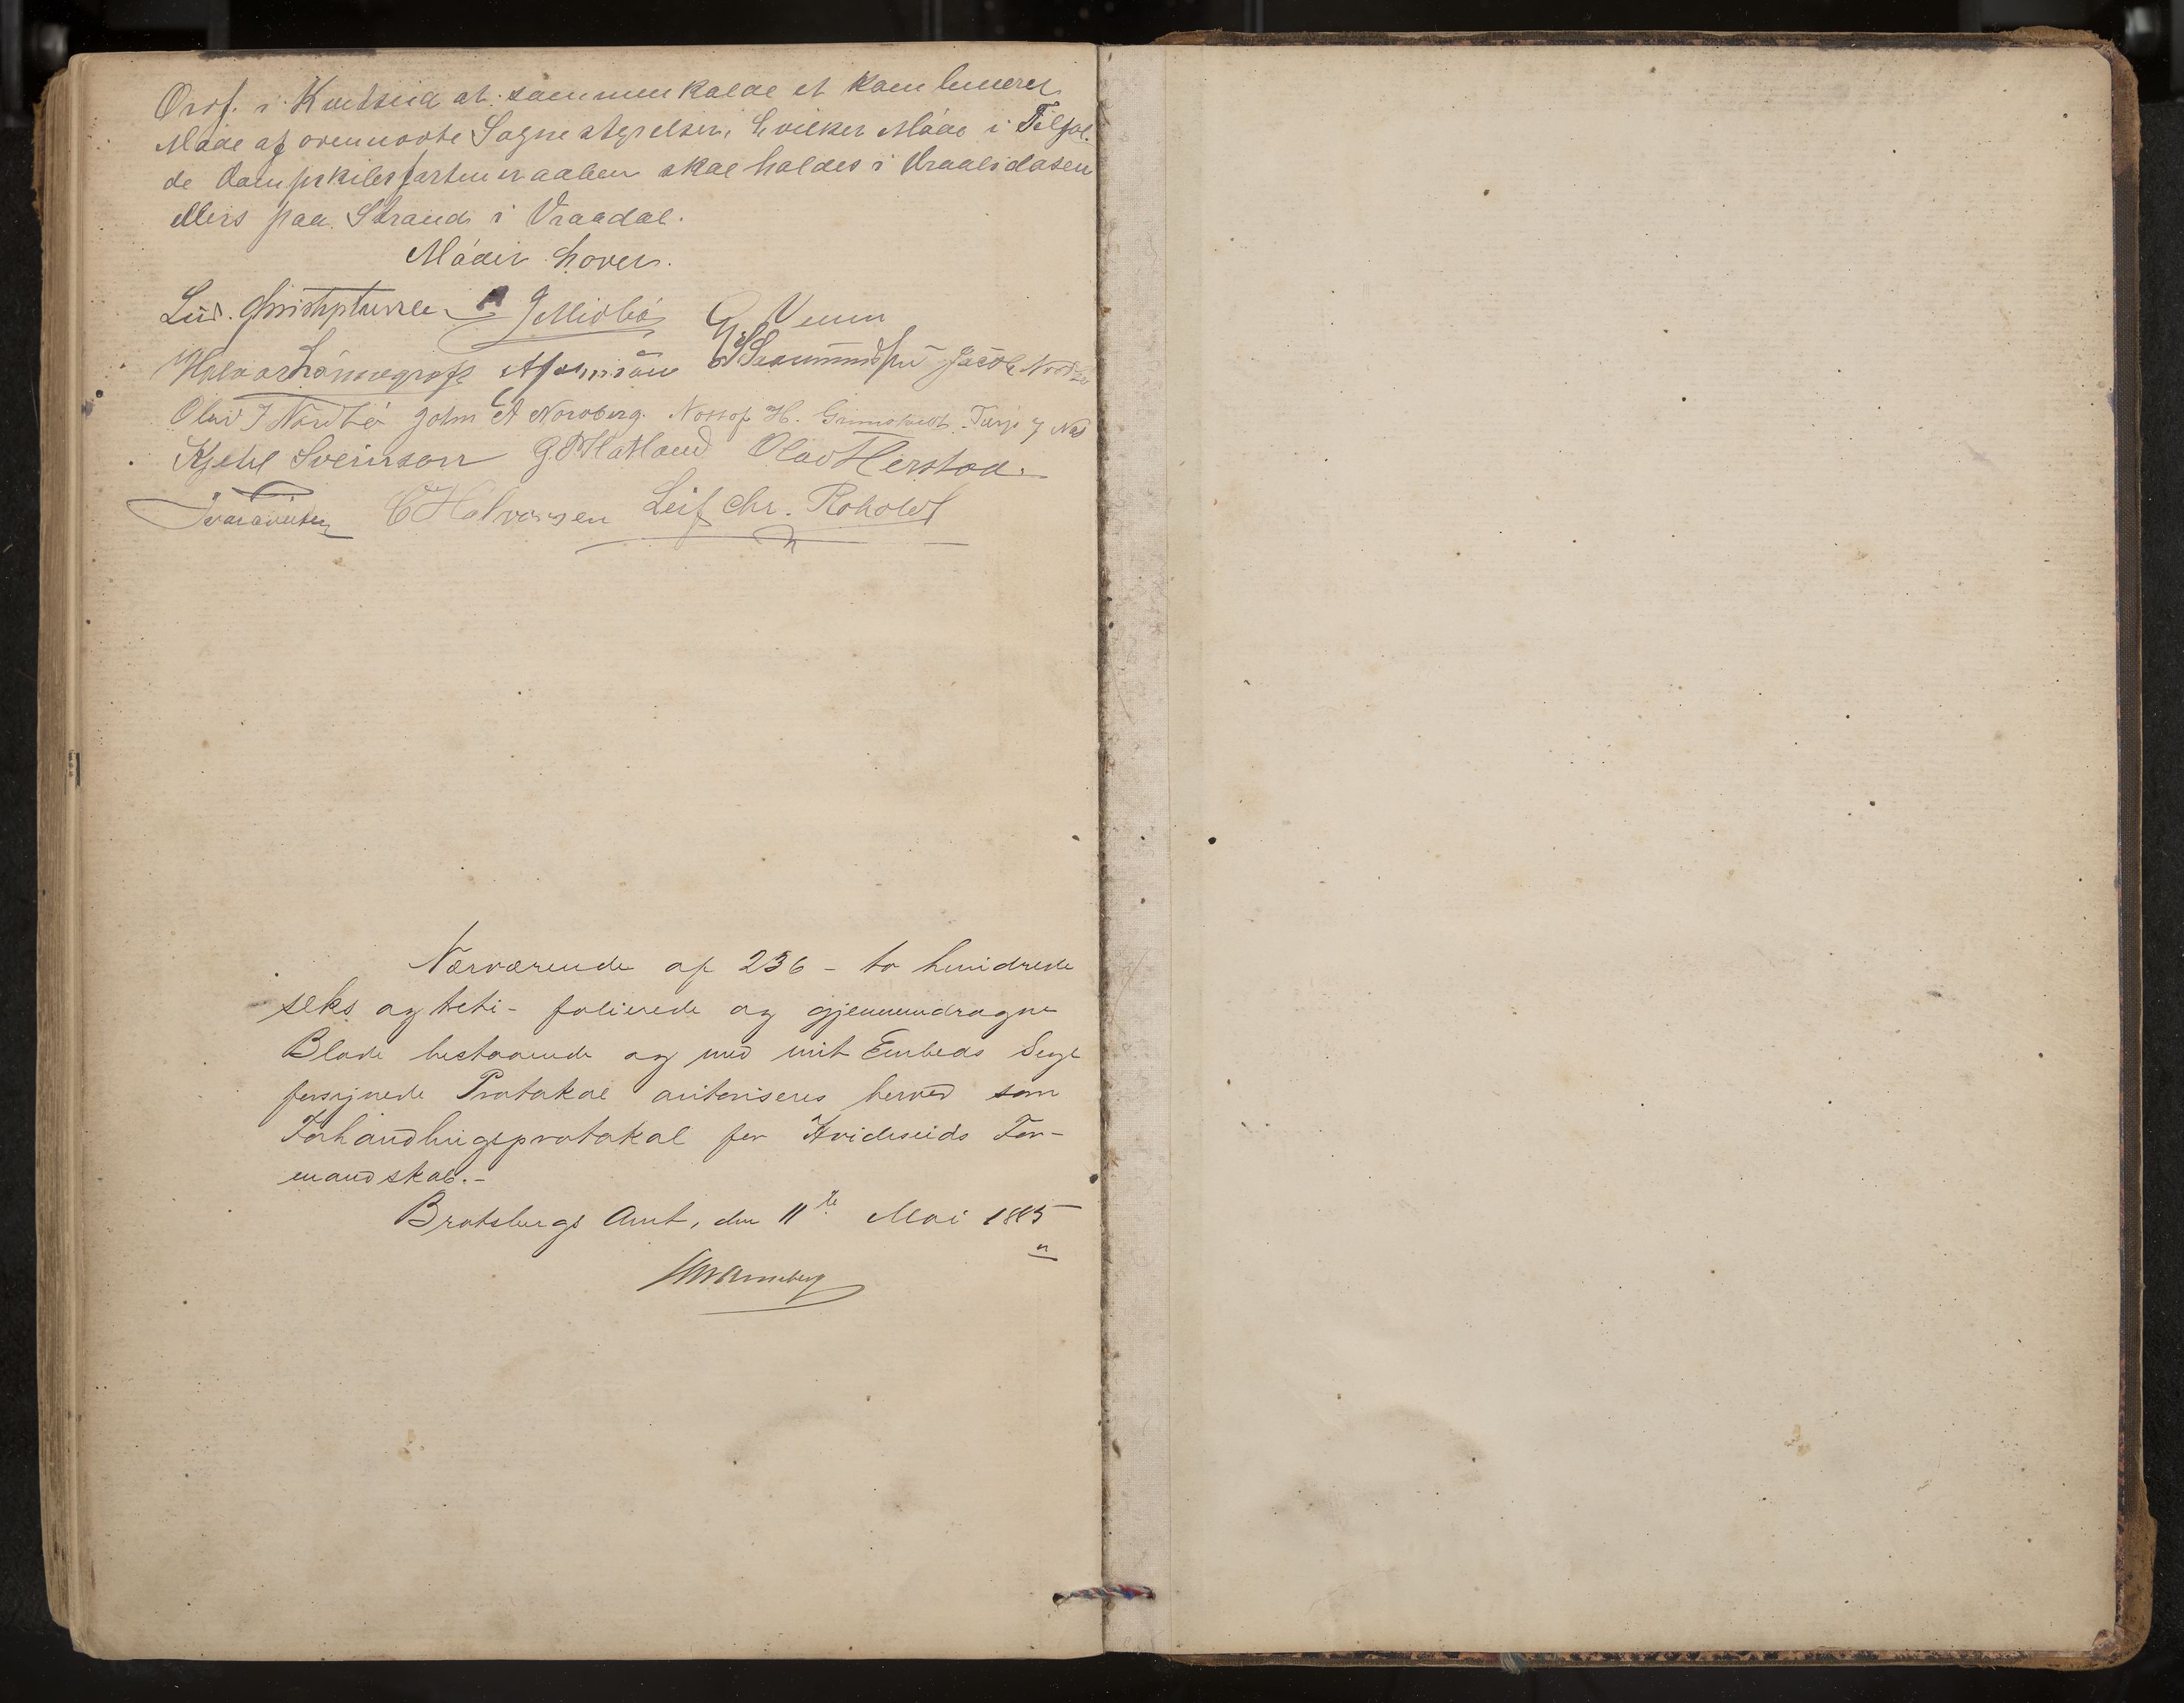 Ordf. i Kvitseid at sammenkalde et kombineret
Møde af ovennævte Sognestyrelser, hvilket Møde i Tilfæl-
de Dampskibsfarten er aaben skal holdes i Vraalsdosen
ellers paa Strand i Vraadal.
Mødet hævet.
G Midbø G. Venm
A Johnsøn Jacob
Olav J Nordbø John A Nordberg. H. Terje J
Kjetil Sveinson G. Hatland Olav Herstad.
C Halvorsen Leif Chr. Roholdt
Nærværende af 236 - to hundrede
seks og treti - folierede og gjennemdragne
Blade bestaaende og med mit Embeds Segl
forsynede Protokol autoriseres herved som
Forhandlingsprotokol for Hvideseids For-
mandskab.-
Bratsbergs Amt, den 11te Mai 1885